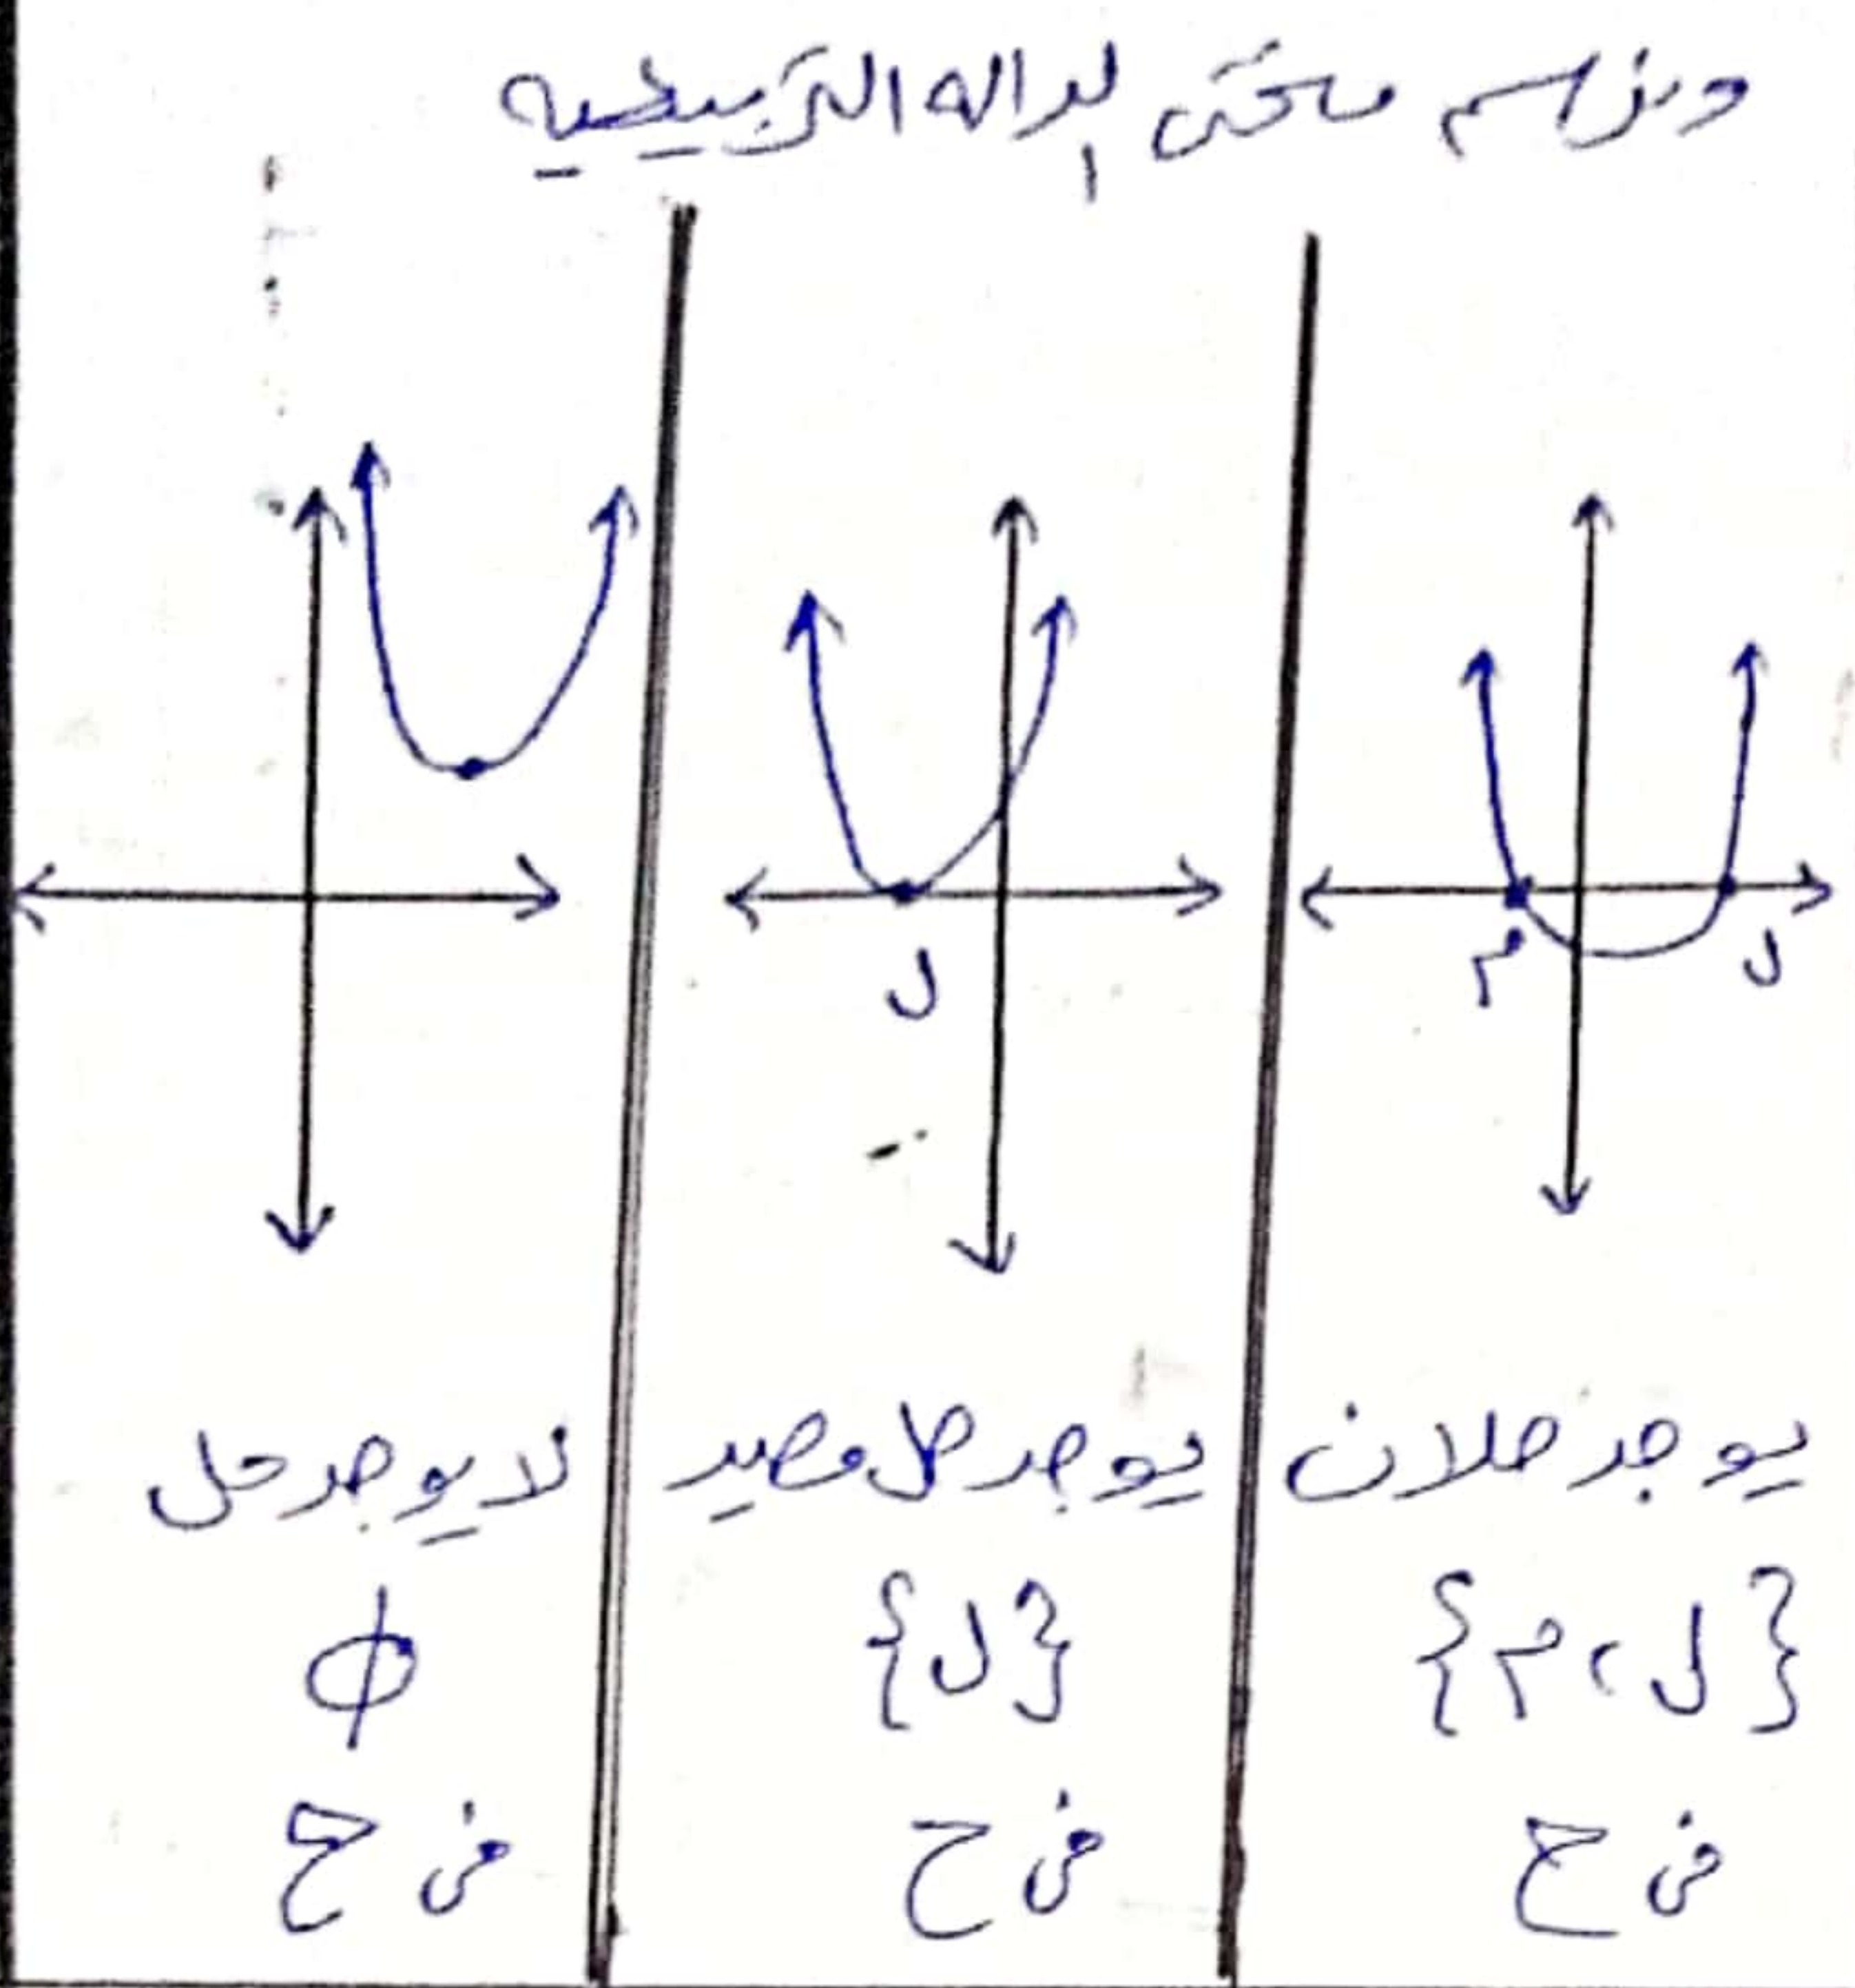 ونرسم منحنى الداله التربيعيه
م
ل
يوجد حلان
{ل، م}
فى ح
ل
يوجد حل وحيد
{ل}
فى ح
لا يوجد حل
ϕ
فى ح